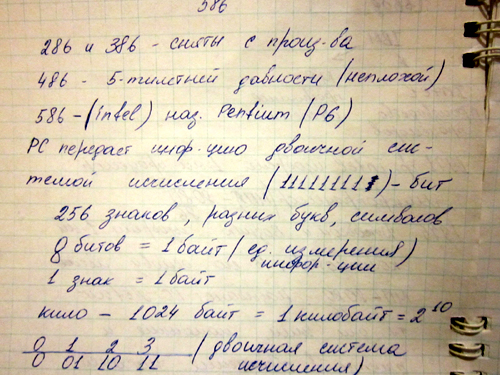 586
286 и 386 - сняты с произ-ва
486 - 5-тилетней давности (неплохой)
586 - (intel) наз. Pentium (P6)
PC передаст инф-цию двоичной сис-
темой исчисления (111111111) - бит
256 знаков, разных букв, символов
8 битов = 1 байт (ед. измерения
инфор-ции)
1 знак = 1 байт
кило - 1024 байт = 1 килобайт = 2¹⁰
0 1 2 3 (двоичная система
0 01 10 11 исчисления)